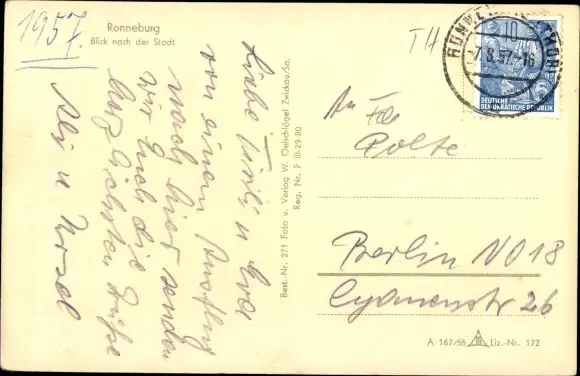 1957.
Ronneburg
Blick nach der Stadt
Liebe u
von einem Ausflug
nach hier senden
wir Euch die
herzlichsten Grüße
u Ursel
Best.-Nr. 271 Foto u. Verlag W. Oelschlägel Zwickau/Sa.
Reg. Nr. F III-29-80
TH
-7.8.57.-16
10
DEUTSCHE
DEMOKRATISCHE REPUBLIK
An Fa
Polte
Berlin NO 18
Cyanenstr 26
A 167/55 Liz.-Nr. 172